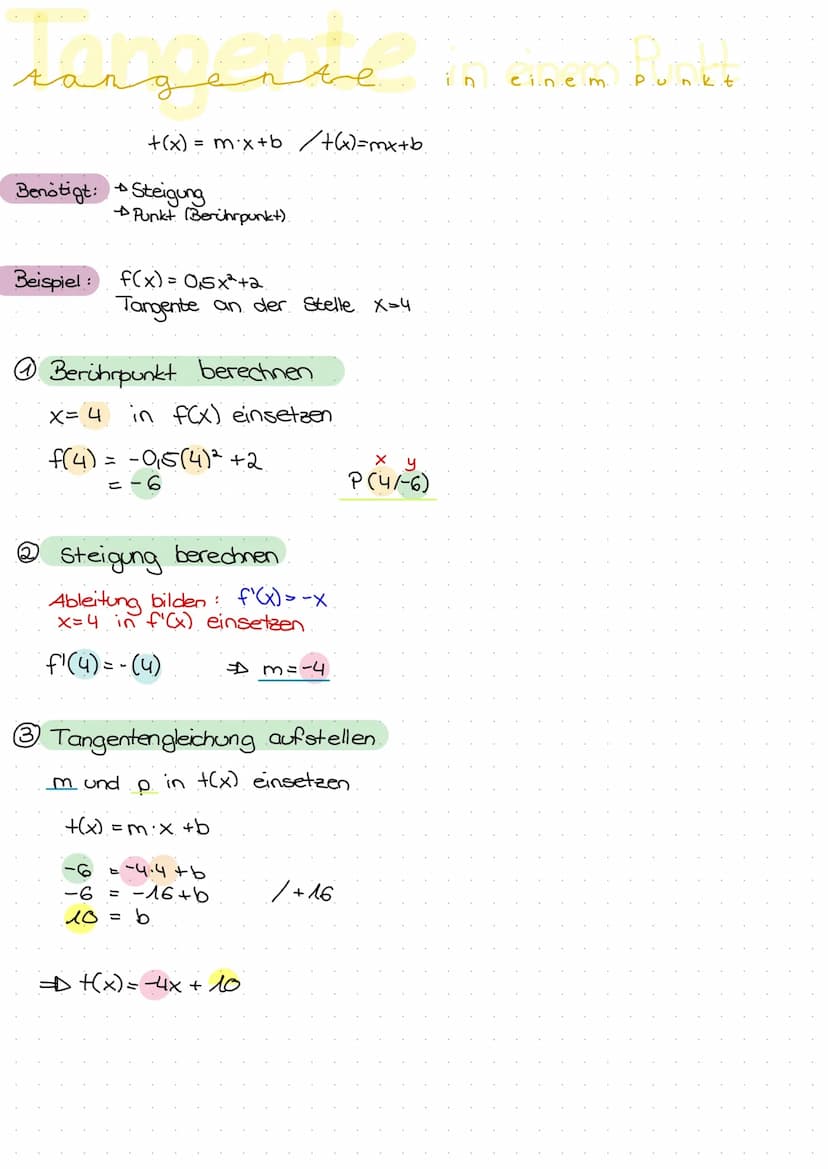 Tangente in einem Punkt
tangente in einem Punkt
t(x) = m·x+b / t(x)=mx+b
Benötigt: → Steigung
→ Punkt (Berührpunkt)
Beispiel: f(x) = 0,5x²+2
Tangente an der Stelle x=4
① Berührpunkt berechnen
x= 4 in f(x) einsetzen
f(4) = -0,5(4)² +2
= -6
x y
P(4/-6)
② Steigung berechnen
Ableitung bilden: f'(x)=-x
x=4 in f'(x) einsetzen
f'(4)=-(4) ⇒ m=-4
③ Tangentengleichung aufstellen
m und p in t(x) einsetzen
t(x) = m·x +b
-6 = -4·4+b
-6 = -16+b /+16
10 = b
⇒ t(x)=-4x + 10